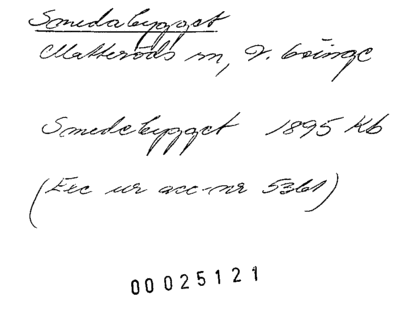 Smedabygget
Matteröds sn, V. Göinge
Smedebygget 1895 Kb
(Exc ur acc-nr 5361)
00025121